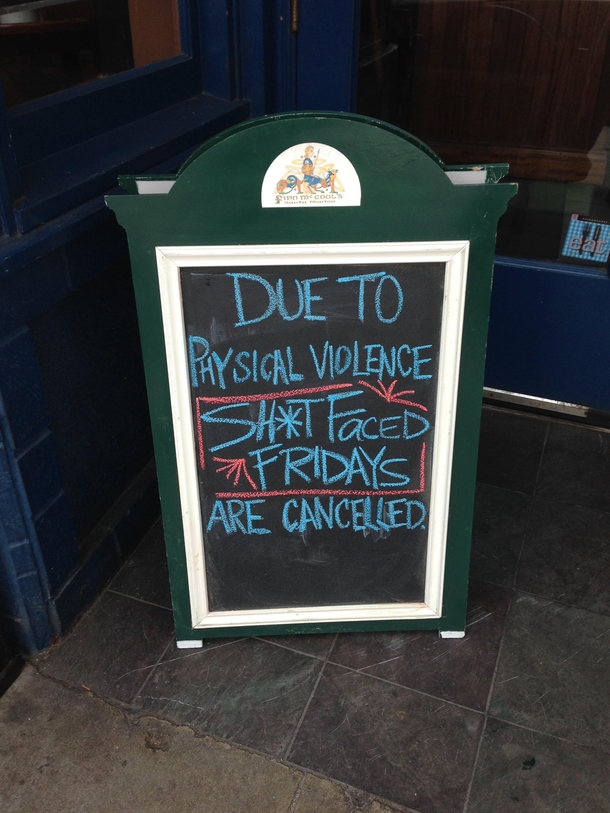 Finn McCool's
DUE TO
PHYSICAL VIOLENCE
SH*T FaCED
FRIDAYS
ARE CANCELLED.